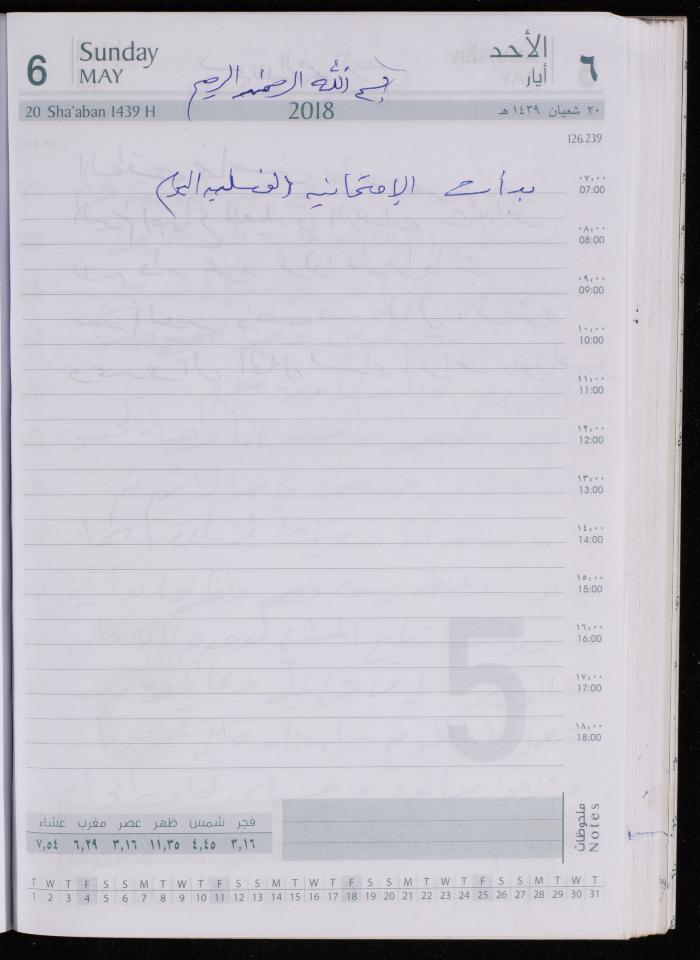 6 Sunday MAY
الأحد ٦
أيار
بسم الله الرحمن الرحيم
20 Sha'aban 1439 H 2018 ٢٠ شعبان ١٤٣٩ هـ
126.239
بدأت الإمتحانيه (الفصليه اليوم)
٠٧,٠٠
07:00
٠٨,٠٠
08:00
٠٩,٠٠
09:00
١٠,٠٠
10:00
١١,٠٠
11:00
١٢,٠٠
12:00
١٣,٠٠
13:00
١٤,٠٠
14:00
١٥,٠٠
15:00
١٦,٠٠
16:00
١٧,٠٠
17:00
١٨,٠٠
18:00
5
ملحوظات
Notes
فجر شمس ظهر عصر مغرب عشاء
٣,١٦ ٤,٤٥ ١١,٣٥ ٣,١٦ ٦,٢٩ ٧,٥٤
T W T F S S M T W T F S S M T W T F S S M T W T F S S M T W T
1 2 3 4 5 6 7 8 9 10 11 12 13 14 15 16 17 18 19 20 21 22 23 24 25 26 27 28 29 30 31